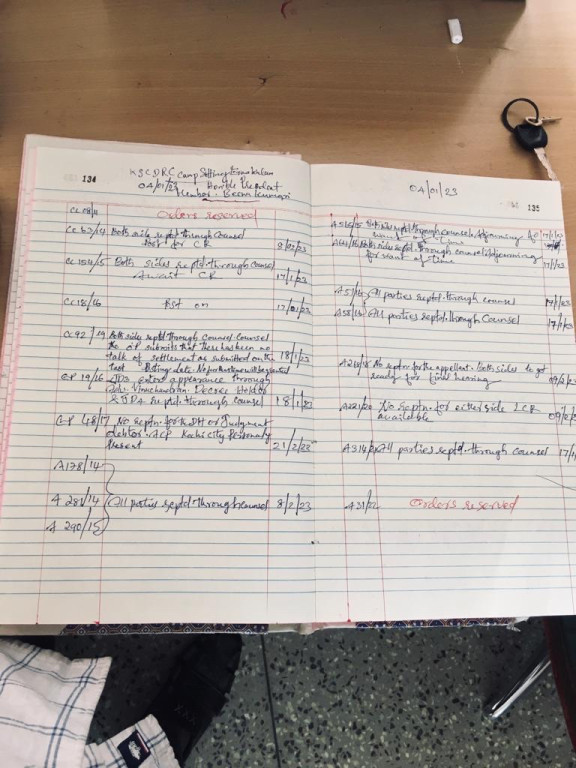 134
KSCDRC Camp Sitting Ernakulam
04/01/23 Hon'ble President
Member - Beena Kumary
Orders reserved
Both sides reptd. through Counsel
for CR
8/02/23
Both sides reptd. through Counsel
Await CR
17/1/23
CC 18/16
List on
17/01/23
CC 92/19 Both sides reptd through Counsel. Counsel
for OP submits that there has been no
talk of settlement as submitted on the
last Posting date. No further time will be granted
18/1/23
EP 19/16 JDs enter appearance through
Adv. Decree Holder
& JDs reptd. through counsel
18/1/23
EP 48/17 No reptn. for DH or Judgment
debtor. ACP Kochi city Personally
Present
21/2/23
A 178/14
A 281/14
All parties reptd. through counsel
8/2/23
A 290/15
04/01/23
135
Both sides reptd through counsel. Adjourning for
want of time
Both sides reptd. through counsel. Adjourning
for want of time
17/1/23
A 57/16 All parties reptd. through counsel
17/1/23
A 58/16 All parties reptd. through Counsel
17/1/23
No reptn. for the appellant. Both sides to get
ready for final hearing
09/2/23
A 221/20 No reptn. for either side LCR
available
09/2/23
All parties reptd. through counsel
A 31/22
Orders reserved